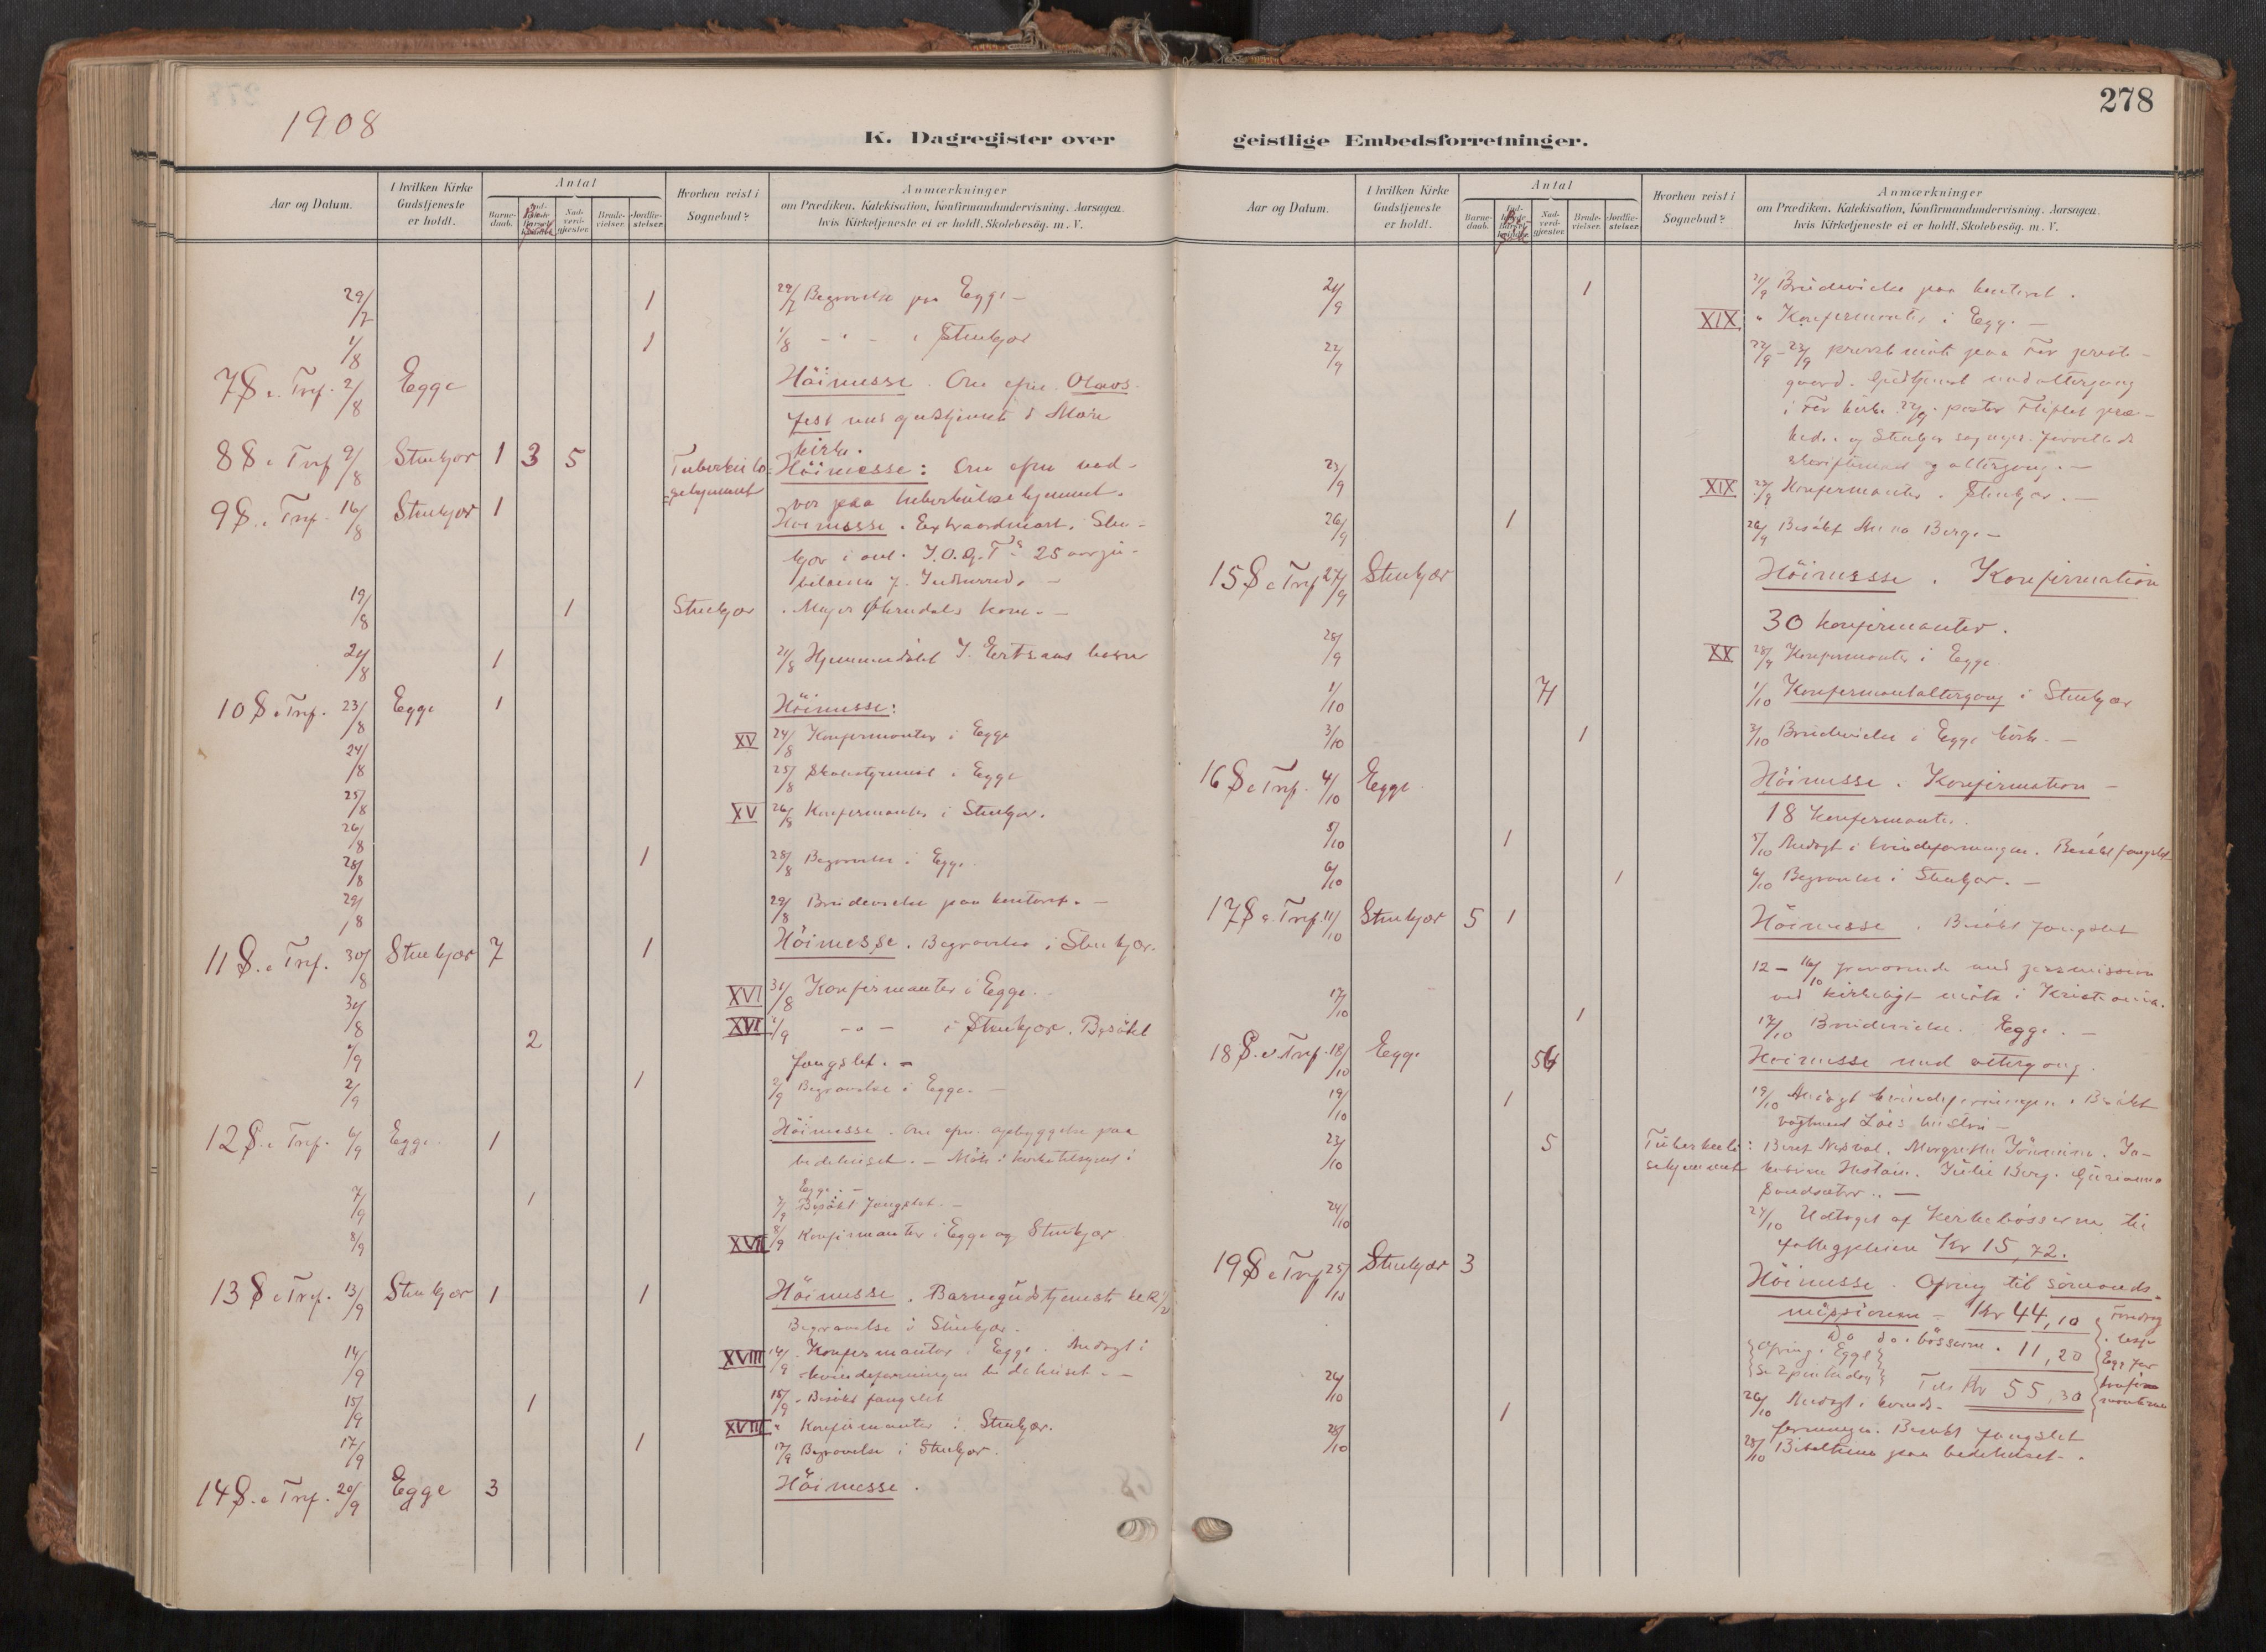 278
1908
K. Dagregister over geistlige Embedsforretninger.
Aar og Datum.
I hvilken Kirke Gudstjeneste er holdt.
Antal
Barne-daab.
Nad-verd-gjæster.
Brude-vielser.
Jordfæ-stelser.
Hvorhen reist i Sognebud?
Anmærkninger
om Prædiken, Katekisation, Konfirmandundervisning, Aarsagen, hvis Kirketjeneste ei er holdt, Skolebesög. m. V.
29/7 1 29/7 Begravelse paa Egge –
1/8 1 1/8 – " – i Stenkjær
7 S. e. Tref. 2/8 Egge Höimesse. Om eftm. Olavs-
fest med gudstjeneste i Mære
kirke.
8 S. e. Tref 9/8 Stenkjær 1 3 5 Tuberkulo- Höimesse: Om eftm nad-
sehjemmet ver paa tuberkulosehjemmet.
9 S. e. Tref. 16/8 Stenkjær 1 Höimesse. Extraordinært. Sten-
kjær i anl. I.O.G.T's 25 aarsju-
bilæum f. Indherred. –
19/8 1 Stenkjær . Major Øhrndals kone. –
21/8 1 21/8 Hjemmedöbt I. barn
10 S. e Tref. 23/8 Egge 1 Höimesse:
24/8 XV 24/8 Konfirmanter i Egge
25/8 25/8 Skolestyremöt i Egge
26/8 XV 26/8 Konfirmanter i Stenkjær.
28/8 1 28/8 Begravelse i Egge.
29/8 29/8 Brudevielse paa kontoret. –
11 S. e Tref. 30/8 Stenkjær 7 1 Höimesse. Begravelse i Stenkjær.
31/8 XVI 31/8 Konfirmanter i Egge.
1/9 2 XVI 1/9 – " – i Stenkjær. Besökt
fængslet. –
2/9 1 2/9 Begravelse i Egge. –
12 S. e Tref. 6/9 Egge. 1 Höimesse. Om eftm. opbyggelse paa
bedehuset. – Möte i kirketilsynet i
Egge. –
7/9 1 7/9 Besökt fængslet. –
8/9 XVII 8/9 Konfirmanter i Egge og Stenkjær
13 S e Tref. 13/9 Stenkjær 1 1 Höimesse. Barnegudstjeneste
Begravelse i Stenkjær.
14/9 XVIII 14/9 Konfirmanter i Egge. Andagt i
kvindeforeningen bedehuset. –
15/9 1 15/9 Besökt fængslet
XVIII " Konfirmanter i Stenkjær.
17/9 1 17/9 Begravelse i Stenkjær.
14 S. e Tref. 20/9 Egge 3 Höimesse.
Aar og Datum.
I hvilken Kirke Gudstjeneste er holdt.
Antal
Barne-daab.
Nad-verd-gjæster.
Brude-vielser.
Jordfæ-stelser.
Hvorhen reist i Sognebud?
Anmærkninger
om Prædiken, Katekisation, Konfirmandundervisning, Aarsagen, hvis Kirketjeneste ei er holdt, Skolebesög. m. V.
21/9 1 21/9 Brudevielse paa kontoret.
XIX " Konfirmanter i Egge –
22/9 22/9 – 23/9 provstimöte paa For preste-
gaard. Gudstjenest med altergang
i For kirke 22/9. pastor Fliflet præ-
ked. og Stenkjær sognepr. forrettede
skriftemaal og altergang. –
23/9 XIX 23/9 Konfirmanter i Stenkjær. –
26/9 1 26/9 Besökt Anna Berg. –
15 S e Tref 27/9 Stenkjær Höimesse. Konfirmation
30 konfirmanter.
28/9 XX 28/9 Konfirmanter i Egge.
1/10 71 1/10 Konfirmantaltergang i Stenkjær
3/10 1 3/10 Brudevielse i Egge kirke. –
16 S e Tref. 4/10 Egge Höimesse. Konfirmation –
18 Konfirmanter.
5/10 1 5/10 Andagt i kvindeforeningen. Besökt fængslet
6/10 1 6/10 Begravelse i Stenkjær. –
17 S e. Tref. 11/10 Stenkjær 5 1 Höimesse. Besökt fængslet
12 – 16/10 fraværende med permission
ved kirkeligt möte i Kristiania.
17/10 1 17/10 Brudevielse. Egge. –
18 S. e Tref. 18/10 Egge 54 Höimesse med altergang.
19/10 1 19/10 Andagt kvindeforeningen. Besökt
vogtmand Löes hustru –
23/10 5 Tuberkulo- : Beret Nesvol, Margrethe Jönnum, Ja-
sehjemmet Julie Berg, Gurianna
24/10 24/10 Udtaget af Kirkebösserne til
fattigpleien Kr 15,72.
19 S e Tref 25/10 Stenkjær 3 Höimesse. Ofring til sömands-
missionen – Kr 44,10
Do do. bösserne. 11,20
Ofring i Egge
Tils Kr 55,30
26/10 1 26/10 Andagt i kvinde-
foreningen. Besökt fængslet
28/10 28/10 Bibeltime paa bedehuset.